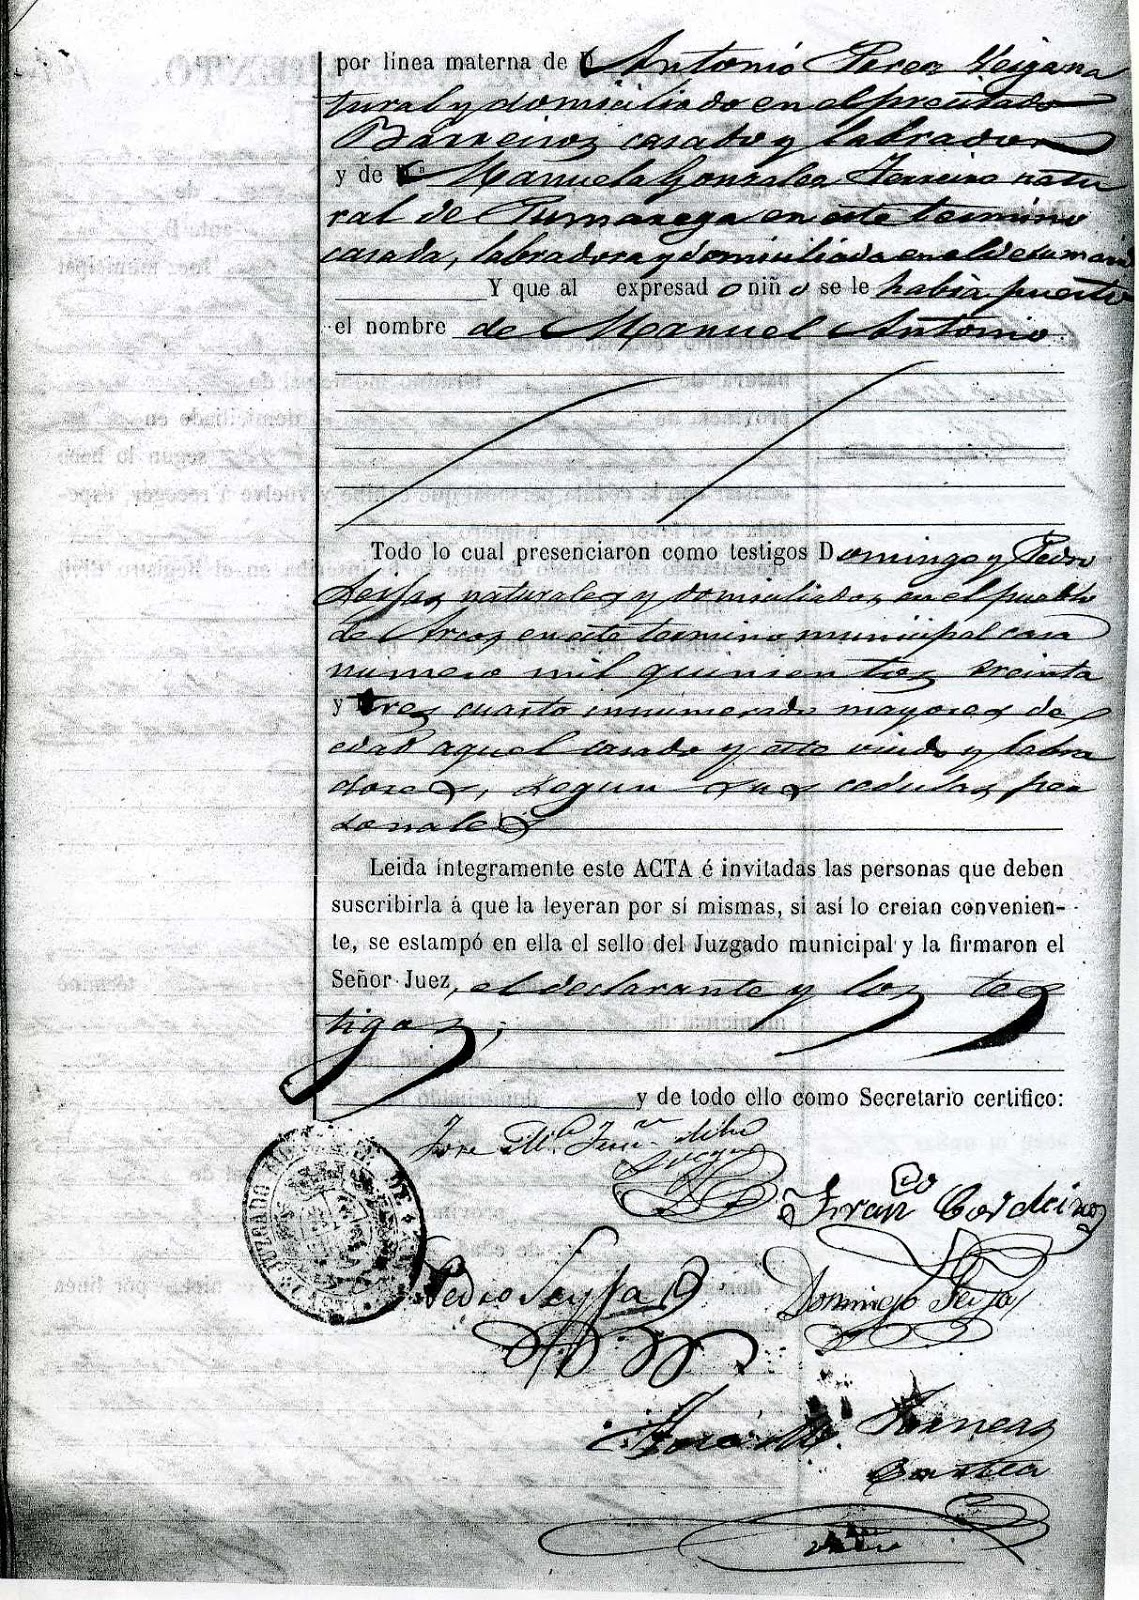 por línea materna de D Antonio Perez Leiga na
tural y domiciliado en el precitado
Barreiros casado y labrador
y de D.ª Manuela Gonzalez Ferreiro natu
ral de Pumarega en este termino
casada, labradora y domiciliada en el de su marido
Y que al expresad o niñ o se le habia puesto
el nombre de Manuel Antonio
Todo lo cual presenciaron como testigos Domingo y Pedro
Seijas naturales y domiciliados en el pueblo
de Arcos en este termino municipal casa
numero mil quinientos treinta
y tres cuarto innumerado mayores de
edad aquel casado y este viudo y labra
dores, segun sus cedulas per
sonales
Leida íntegramente este ACTA é invitadas las personas que deben
suscribirla á que la leyeran por sí mismas, si así lo creian convenien-
te, se estampó en ella el sello del Juzgado municipal y la firmaron el
Señor Juez, el declarante y los tes
tigos,
y de todo ello como Secretario certifico:
Jose M.ª
Fran.co Cordeiro
Pedro Seyjas
Domingo Seijas
José M.
JUZGADO MUNICIPAL DE